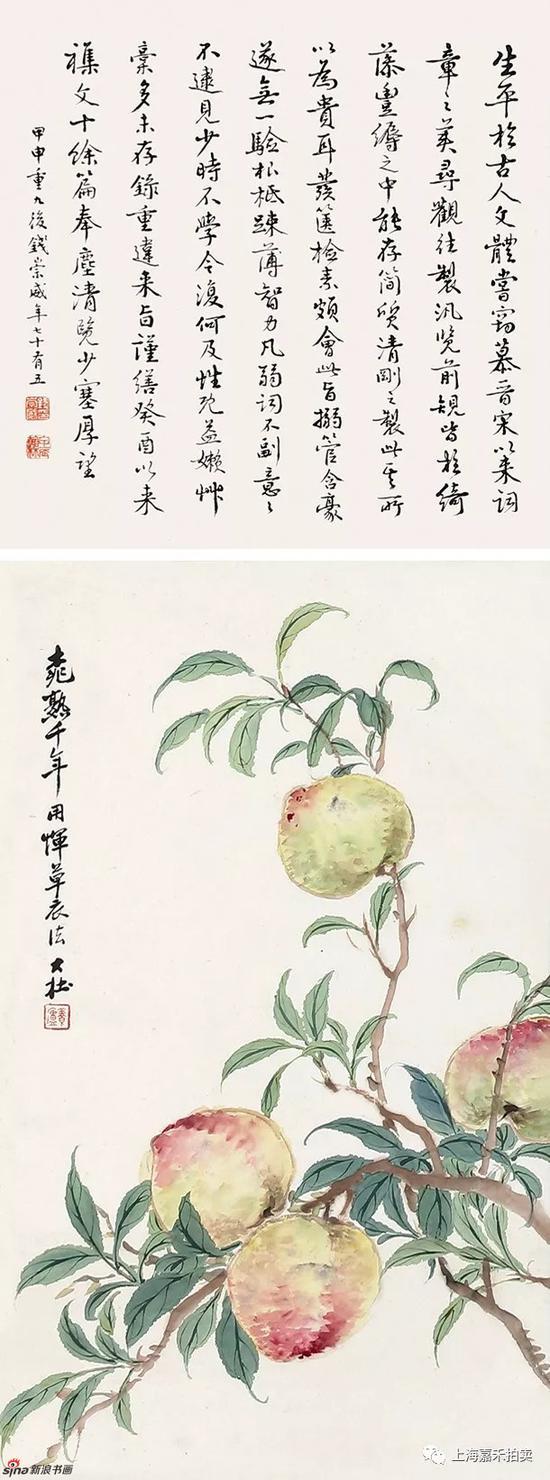 生平於古人文體嘗竊慕晉宋以來詞
章之美尋觀往製汎覽前規皆於綺
藻豐縟之中能存簡質清剛之製此其所
以為貴耳發篋檢素頗會此旨搦管含豪
遂無一驗根柢踈薄智力凡弱詞不副意〻
不逮見少時不學今復何及性既益嬾艸
稾多未存錄重違來旨謹繕癸酉以來
襍文十餘篇奉塵清覽少塞厚望
甲申重九後錢崇威年七十有五
桃熟千年 用惲草衣法 大壯
sina新浪书画
上海嘉禾拍卖